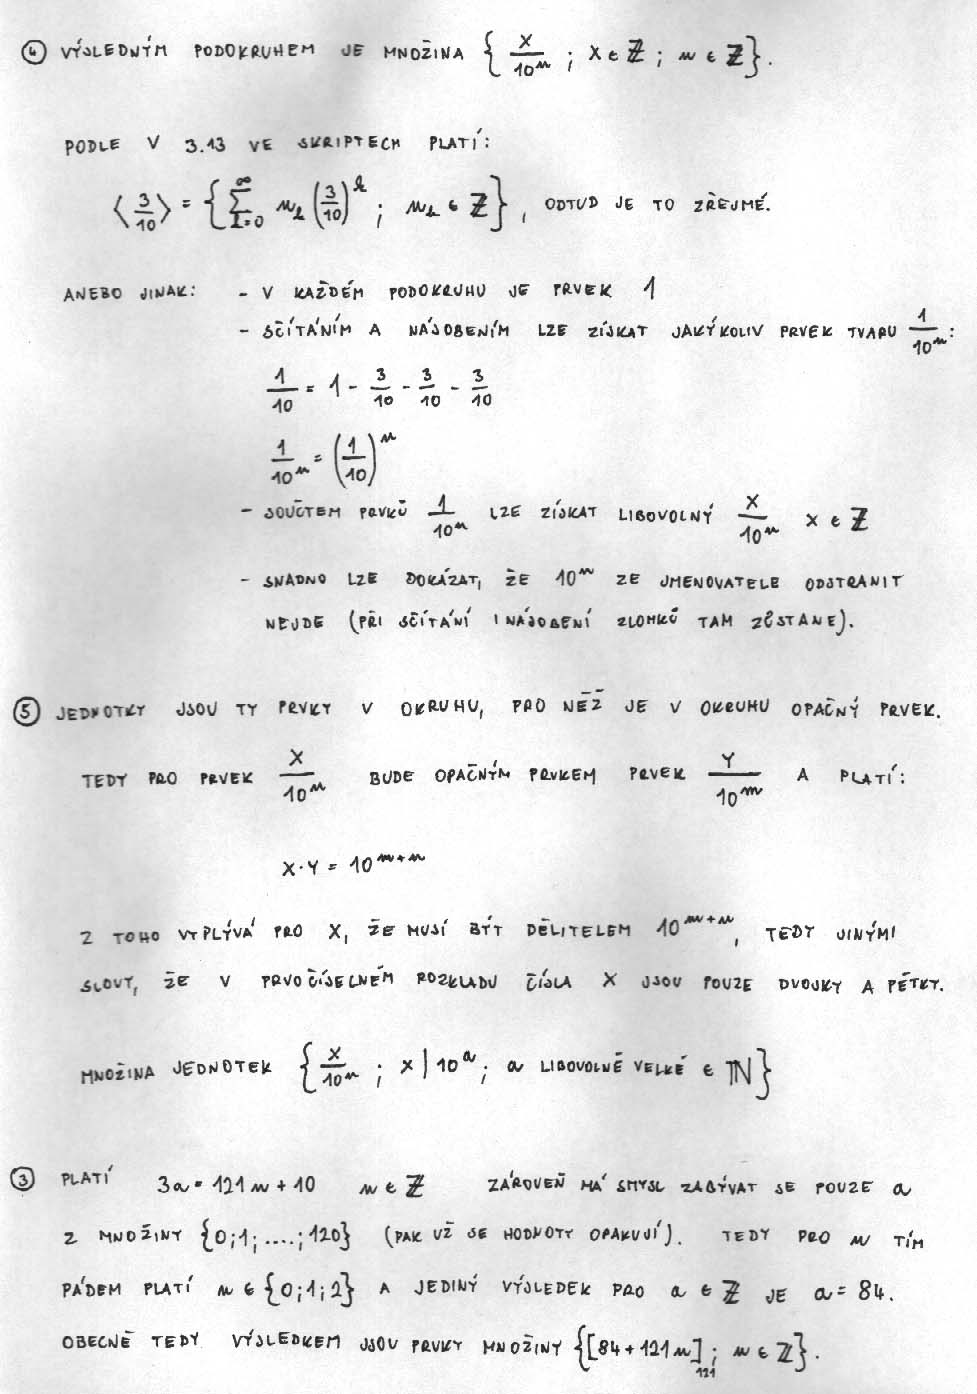 ④ VÝSLEDNÝM PODOKRUHEM JE MNOŽINA { X/10ⁿ ; X ∈ ℤ ; n ∈ ℤ }.
PODLE V 3.13 VE SKRIPTECH PLATÍ:
⟨3/10⟩ = { ∑_{I=0}^{∞} n_k (3/10)^k ; n_k ∈ ℤ }, ODTUD JE TO ZŘEJMÉ.
ANEBO JINAK: - V KAŽDÉM PODOKRUHU JE PRVEK 1
- SČÍTÁNÍM A NÁSOBENÍM LZE ZÍSKAT JAKÝKOLIV PRVEK TVARU 1/10ⁿ :
1/10 = 1 - 3/10 - 3/10 - 3/10
1/10ⁿ = (1/10)ⁿ
- SOUČTEM PRVKŮ 1/10ⁿ LZE ZÍSKAT LIBOVOLNÝ X/10ⁿ X ∈ ℤ
- SNADNO LZE DOKÁZAT, ŽE 10ⁿ ZE JMENOVATELE ODSTRANIT
NEJDE (PŘI SČÍTÁNÍ I NÁSOBENÍ ZLOMKŮ TAM ZŮSTANE).
⑤ JEDNOTKY JSOU TY PRVKY V OKRUHU, PRO NĚŽ JE V OKRUHU OPAČNÝ PRVEK.
TEDY PRO PRVEK X/10ⁿ BUDE OPAČNÝM PRVKEM PRVEK Y/10ᵐ A PLATÍ:
X·Y = 10ᵐ⁺ⁿ
Z TOHO VYPLÝVÁ PRO X, ŽE MUSÍ BÝT DĚLITELEM 10ᵐ⁺ⁿ, TEDY JINÝMI
SLOVY, ŽE V PRVOČÍSELNÉM ROZKLADU ČÍSLA X JSOU POUZE DVOJKY A PĚTKY.
MNOŽINA JEDNOTEK { X/10ⁿ ; X | 10ᵃ ; a LIBOVOLNĚ VELKÉ ∈ ℕ }
③ PLATÍ 3a = 121n + 10 n ∈ ℤ ZÁROVEŇ MÁ SMYSL ZABÝVAT SE POUZE a
Z MNOŽINY {0;1;....;120} (PAK UŽ SE HODNOTY OPAKUJÍ). TEDY PRO n TÍM
PÁDEM PLATÍ n ∈ {0;1;2} A JEDINÝ VÝSLEDEK PRO a ∈ ℤ JE a = 84.
OBECNĚ TEDY VÝSLEDKEM JSOU PRVKY MNOŽINY {[84 + 121n]₁₂₁ ; n ∈ ℤ}.